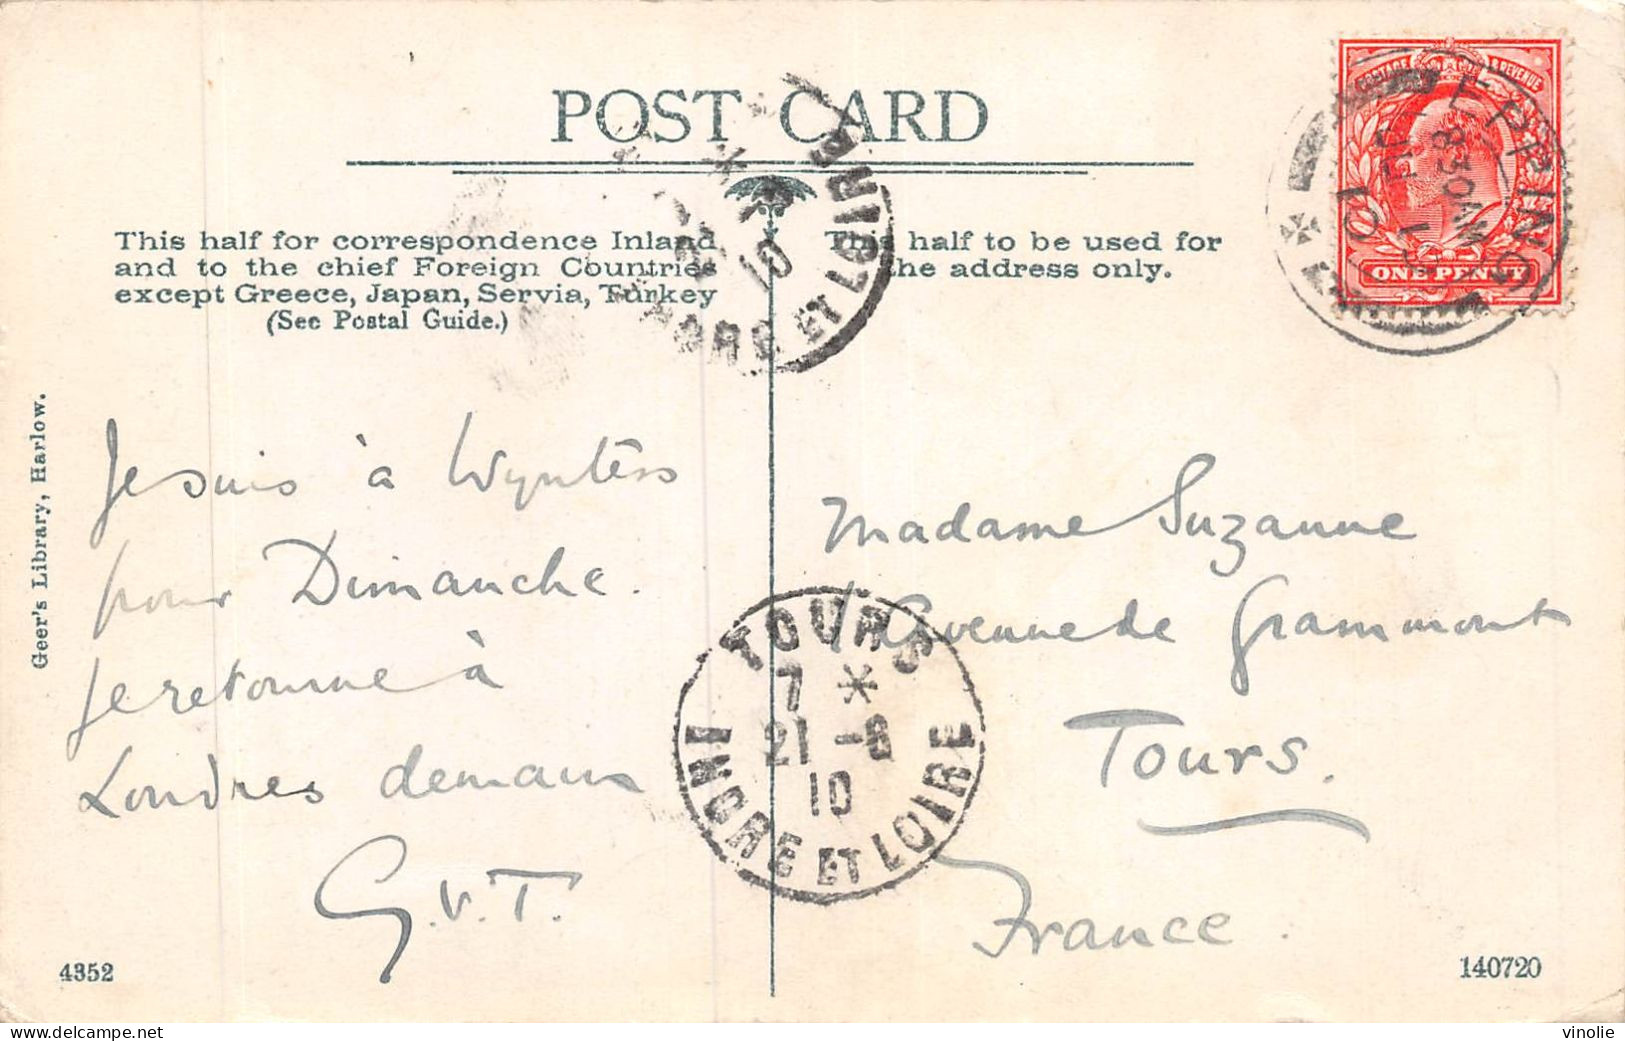 POST CARD
This half for correspondence Inland
and to the chief Foreign Countries
except Greece, Japan, Servia, Turkey
(See Postal Guide.)
This half to be used for
the address only.
POSTAGE & REVENUE
ONE PENNY
EPPING
8 30AM
10
INDRE ET LOIRE
10
Geer's Library, Harlow.
Je suis à Wynters
pour Dimanche.
Je retourne à
Londres demain
G.V.T.
Madame Suzanne
Avenue de Grammont
Tours.
France.
TOURS
7 *
21 -6
10
INDRE ET LOIRE
4352
140720
vinolie